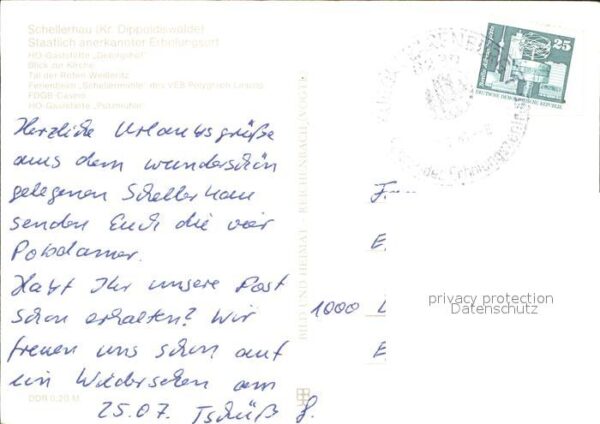 Schellerhau (Kr. Dippoldiswalde)
Staatlich anerkannter Erholungsort
HO-Gaststätte
Blick zur Kirche
Tal der Roten Weißeritz
Ferienheim "Schellermühle" des VEB Polygraph Leipzig
FDGB-Casino
HO-Gaststätte
Herzliche Urlaubsgrüße
aus dem wunderschön
gelegenen Schellerhau
senden Euch die vier
Potsdamer.
Habt Ihr unsere Post
schon erhalten? Wir
freuen uns schon auf
ein Wiedersehen am
25.07. Tschüß
DDR 0,20 M
BILD UND HEIMAT · REICHENBACH (VOGTL)
25
DEUTSCHE DEMOKRATISCHE REPUBLIK
F
E
1000
E
privacy protection
Datenschutz